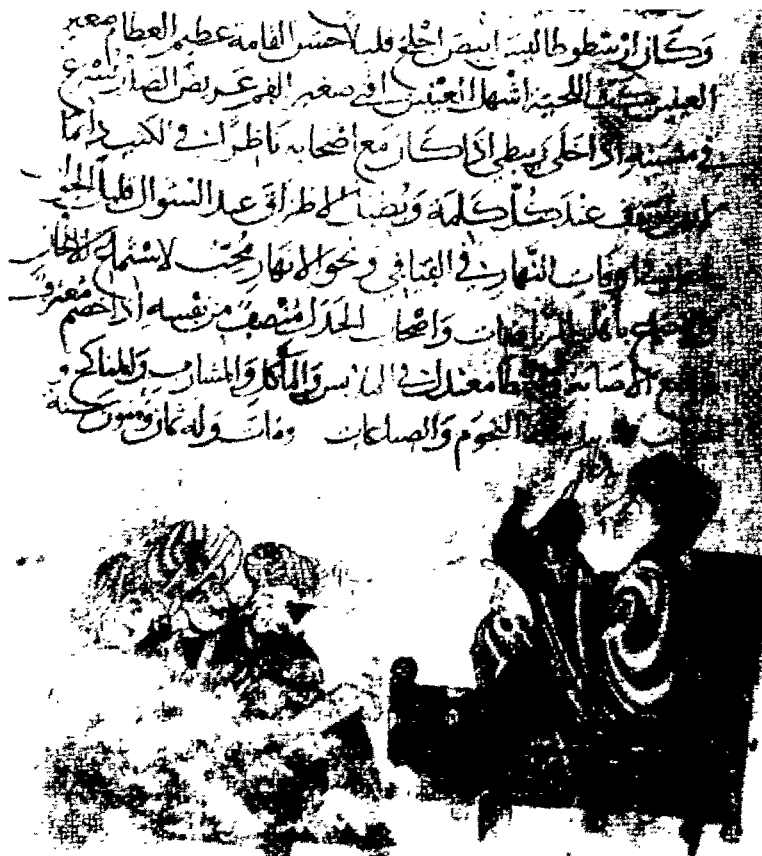 وكان ارسطوطاليس ابيض اجلح قليلا حسن القامة عظيم العظام صغير
العينين كث اللحية اشهل العينين اقنى صغير الفم عريض الصدر يسرع
في مشيته اذا خلى ويبطي اذا كان مع اصحابه ناظرا في الكتب دائما
ويقف عند كل كلمة ويطيل الاطراق عند السؤال قليل الجواب
في اوقات النهار في الفيافي ونحو الانهار محب لاستماع الالحان
والاجتماع باهل الرياضات واصحاب الجدل منصف من نفسه اذا خصم معترف
بموضع الاصابة والخطا معتدل في الملابس والمآكل والمشارب والمناكح و
النجوم والساعات ومات وله ثمان وستون سنة